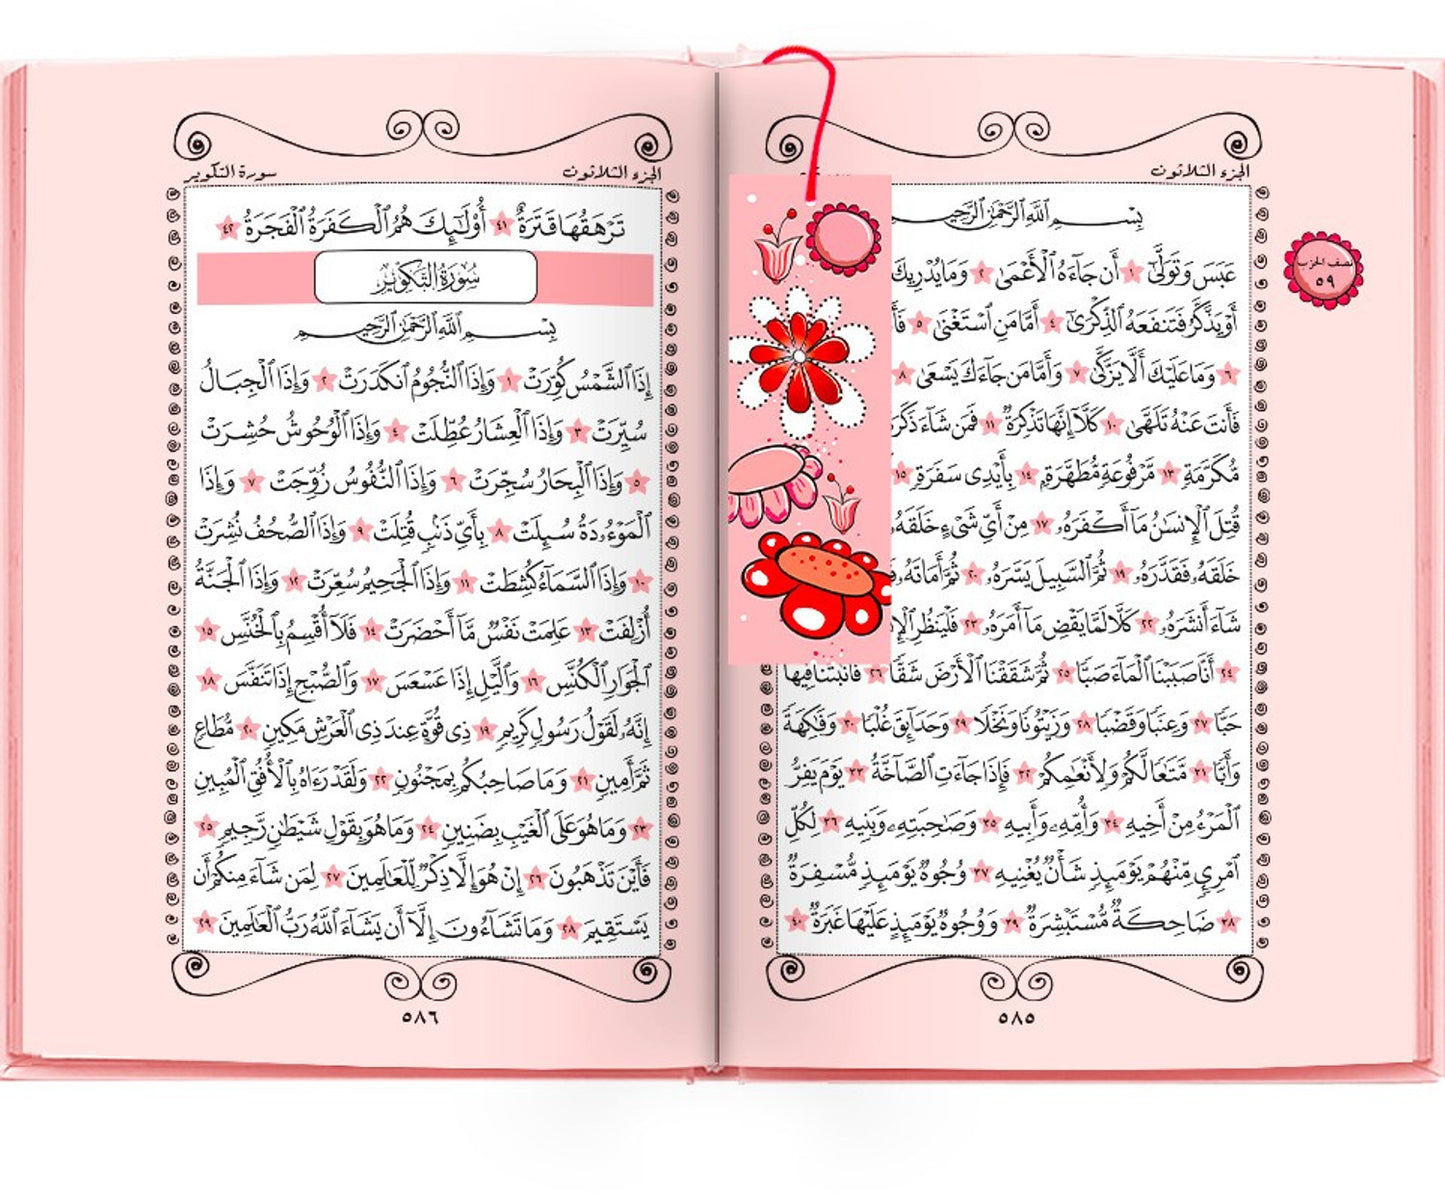 الجزء الثلاثون
بِسْمِ ٱللَّهِ ٱلرَّحْمَٰنِ ٱلرَّحِيمِ
عَبَسَ وَتَوَلَّىٰٓ ١ أَن جَآءَهُ ٱلْأَعْمَىٰ ٢ وَمَا يُدْرِيكَ
أَوْ يَذَّكَّرُ فَتَنفَعَهُ ٱلذِّكْرَىٰٓ ٤ أَمَّا مَنِ ٱسْتَغْنَىٰ ٥
٦ وَمَا عَلَيْكَ أَلَّا يَزَّكَّىٰ ٧ وَأَمَّا مَن جَآءَكَ يَسْعَىٰ ٨
فَأَنتَ عَنْهُ تَلَهَّىٰ ١٠ كَلَّآ إِنَّهَا تَذْكِرَةٌ ١١ فَمَن شَآءَ ذَكَرَ
مُّكَرَّمَةٍ ١٣ مَّرْفُوعَةٍ مُّطَهَّرَةٍۭ ١٤ بِأَيْدِى سَفَرَةٍ ١٥
قُتِلَ ٱلْإِنسَٰنُ مَآ أَكْفَرَهُۥ ١٧ مِنْ أَىِّ شَىْءٍ خَلَقَهُۥ
خَلَقَهُۥ فَقَدَّرَهُۥ ١٩ ثُمَّ ٱلسَّبِيلَ يَسَّرَهُۥ ٢٠ ثُمَّ أَمَاتَهُۥ
شَآءَ أَنشَرَهُۥ ٢٢ كَلَّا لَمَّا يَقْضِ مَآ أَمَرَهُۥ ٢٣ فَلْيَنظُرِ
٢٤ أَنَّا صَبَبْنَا ٱلْمَآءَ صَبًّا ٢٥ ثُمَّ شَقَقْنَا ٱلْأَرْضَ شَقًّا ٢٦ فَأَنۢبَتْنَا فِيهَا
حَبًّا ٢٧ وَعِنَبًا وَقَضْبًا ٢٨ وَزَيْتُونًا وَنَخْلًا ٢٩ وَحَدَآئِقَ غُلْبًا ٣٠ وَفَٰكِهَةً
وَأَبًّا ٣١ مَّتَٰعًا لَّكُمْ وَلِأَنْعَٰمِكُمْ ٣٢ فَإِذَا جَآءَتِ ٱلصَّآخَّةُ ٣٣ يَوْمَ يَفِرُّ
ٱلْمَرْءُ مِنْ أَخِيهِ ٣٤ وَأُمِّهِۦ وَأَبِيهِ ٣٥ وَصَٰحِبَتِهِۦ وَبَنِيهِ ٣٦ لِكُلِّ
ٱمْرِئٍ مِّنْهُمْ يَوْمَئِذٍ شَأْنٌ يُغْنِيهِ ٣٧ وُجُوهٌ يَوْمَئِذٍ مُّسْفِرَةٌ
٣٨ ضَاحِكَةٌ مُّسْتَبْشِرَةٌ ٣٩ وَوُجُوهٌ يَوْمَئِذٍ عَلَيْهَا غَبَرَةٌ ٤٠
٥٨٥
نصف الحزب
٥٩
الجزء الثلاثون سورة التكوير
تَرْهَقُهَا قَتَرَةٌ ٤١ أُو۟لَٰٓئِكَ هُمُ ٱلْكَفَرَةُ ٱلْفَجَرَةُ ٤٢
سُورَةُ التَّكْوِيرِ
بِسْمِ ٱللَّهِ ٱلرَّحْمَٰنِ ٱلرَّحِيمِ
إِذَا ٱلشَّمْسُ كُوِّرَتْ ١ وَإِذَا ٱلنُّجُومُ ٱنكَدَرَتْ ٢ وَإِذَا ٱلْجِبَالُ
سُيِّرَتْ ٣ وَإِذَا ٱلْعِشَارُ عُطِّلَتْ ٤ وَإِذَا ٱلْوُحُوشُ حُشِرَتْ
٥ وَإِذَا ٱلْبِحَارُ سُجِّرَتْ ٦ وَإِذَا ٱلنُّفُوسُ زُوِّجَتْ ٧ وَإِذَا
ٱلْمَوْءُۥدَةُ سُئِلَتْ ٨ بِأَىِّ ذَنۢبٍ قُتِلَتْ ٩ وَإِذَا ٱلصُّحُفُ نُشِرَتْ
١٠ وَإِذَا ٱلسَّمَآءُ كُشِطَتْ ١١ وَإِذَا ٱلْجَحِيمُ سُعِّرَتْ ١٢ وَإِذَا ٱلْجَنَّةُ
أُزْلِفَتْ ١٣ عَلِمَتْ نَفْسٌ مَّآ أَحْضَرَتْ ١٤ فَلَآ أُقْسِمُ بِٱلْخُنَّسِ ١٥
ٱلْجَوَارِ ٱلْكُنَّسِ ١٦ وَٱلَّيْلِ إِذَا عَسْعَسَ ١٧ وَٱلصُّبْحِ إِذَا تَنَفَّسَ ١٨
إِنَّهُۥ لَقَوْلُ رَسُولٍ كَرِيمٍ ١٩ ذِى قُوَّةٍ عِندَ ذِى ٱلْعَرْشِ مَكِينٍ ٢٠ مُّطَاعٍ
ثَمَّ أَمِينٍ ٢١ وَمَا صَاحِبُكُم بِمَجْنُونٍ ٢٢ وَلَقَدْ رَءَاهُ بِٱلْأُفُقِ ٱلْمُبِينِ
٢٣ وَمَا هُوَ عَلَى ٱلْغَيْبِ بِضَنِينٍ ٢٤ وَمَا هُوَ بِقَوْلِ شَيْطَٰنٍ رَّجِيمٍ ٢٥
فَأَيْنَ تَذْهَبُونَ ٢٦ إِنْ هُوَ إِلَّا ذِكْرٌ لِّلْعَٰلَمِينَ ٢٧ لِمَن شَآءَ مِنكُمْ أَن
يَسْتَقِيمَ ٢٨ وَمَا تَشَآءُونَ إِلَّآ أَن يَشَآءَ ٱللَّهُ رَبُّ ٱلْعَٰلَمِينَ ٢٩
٥٨٦